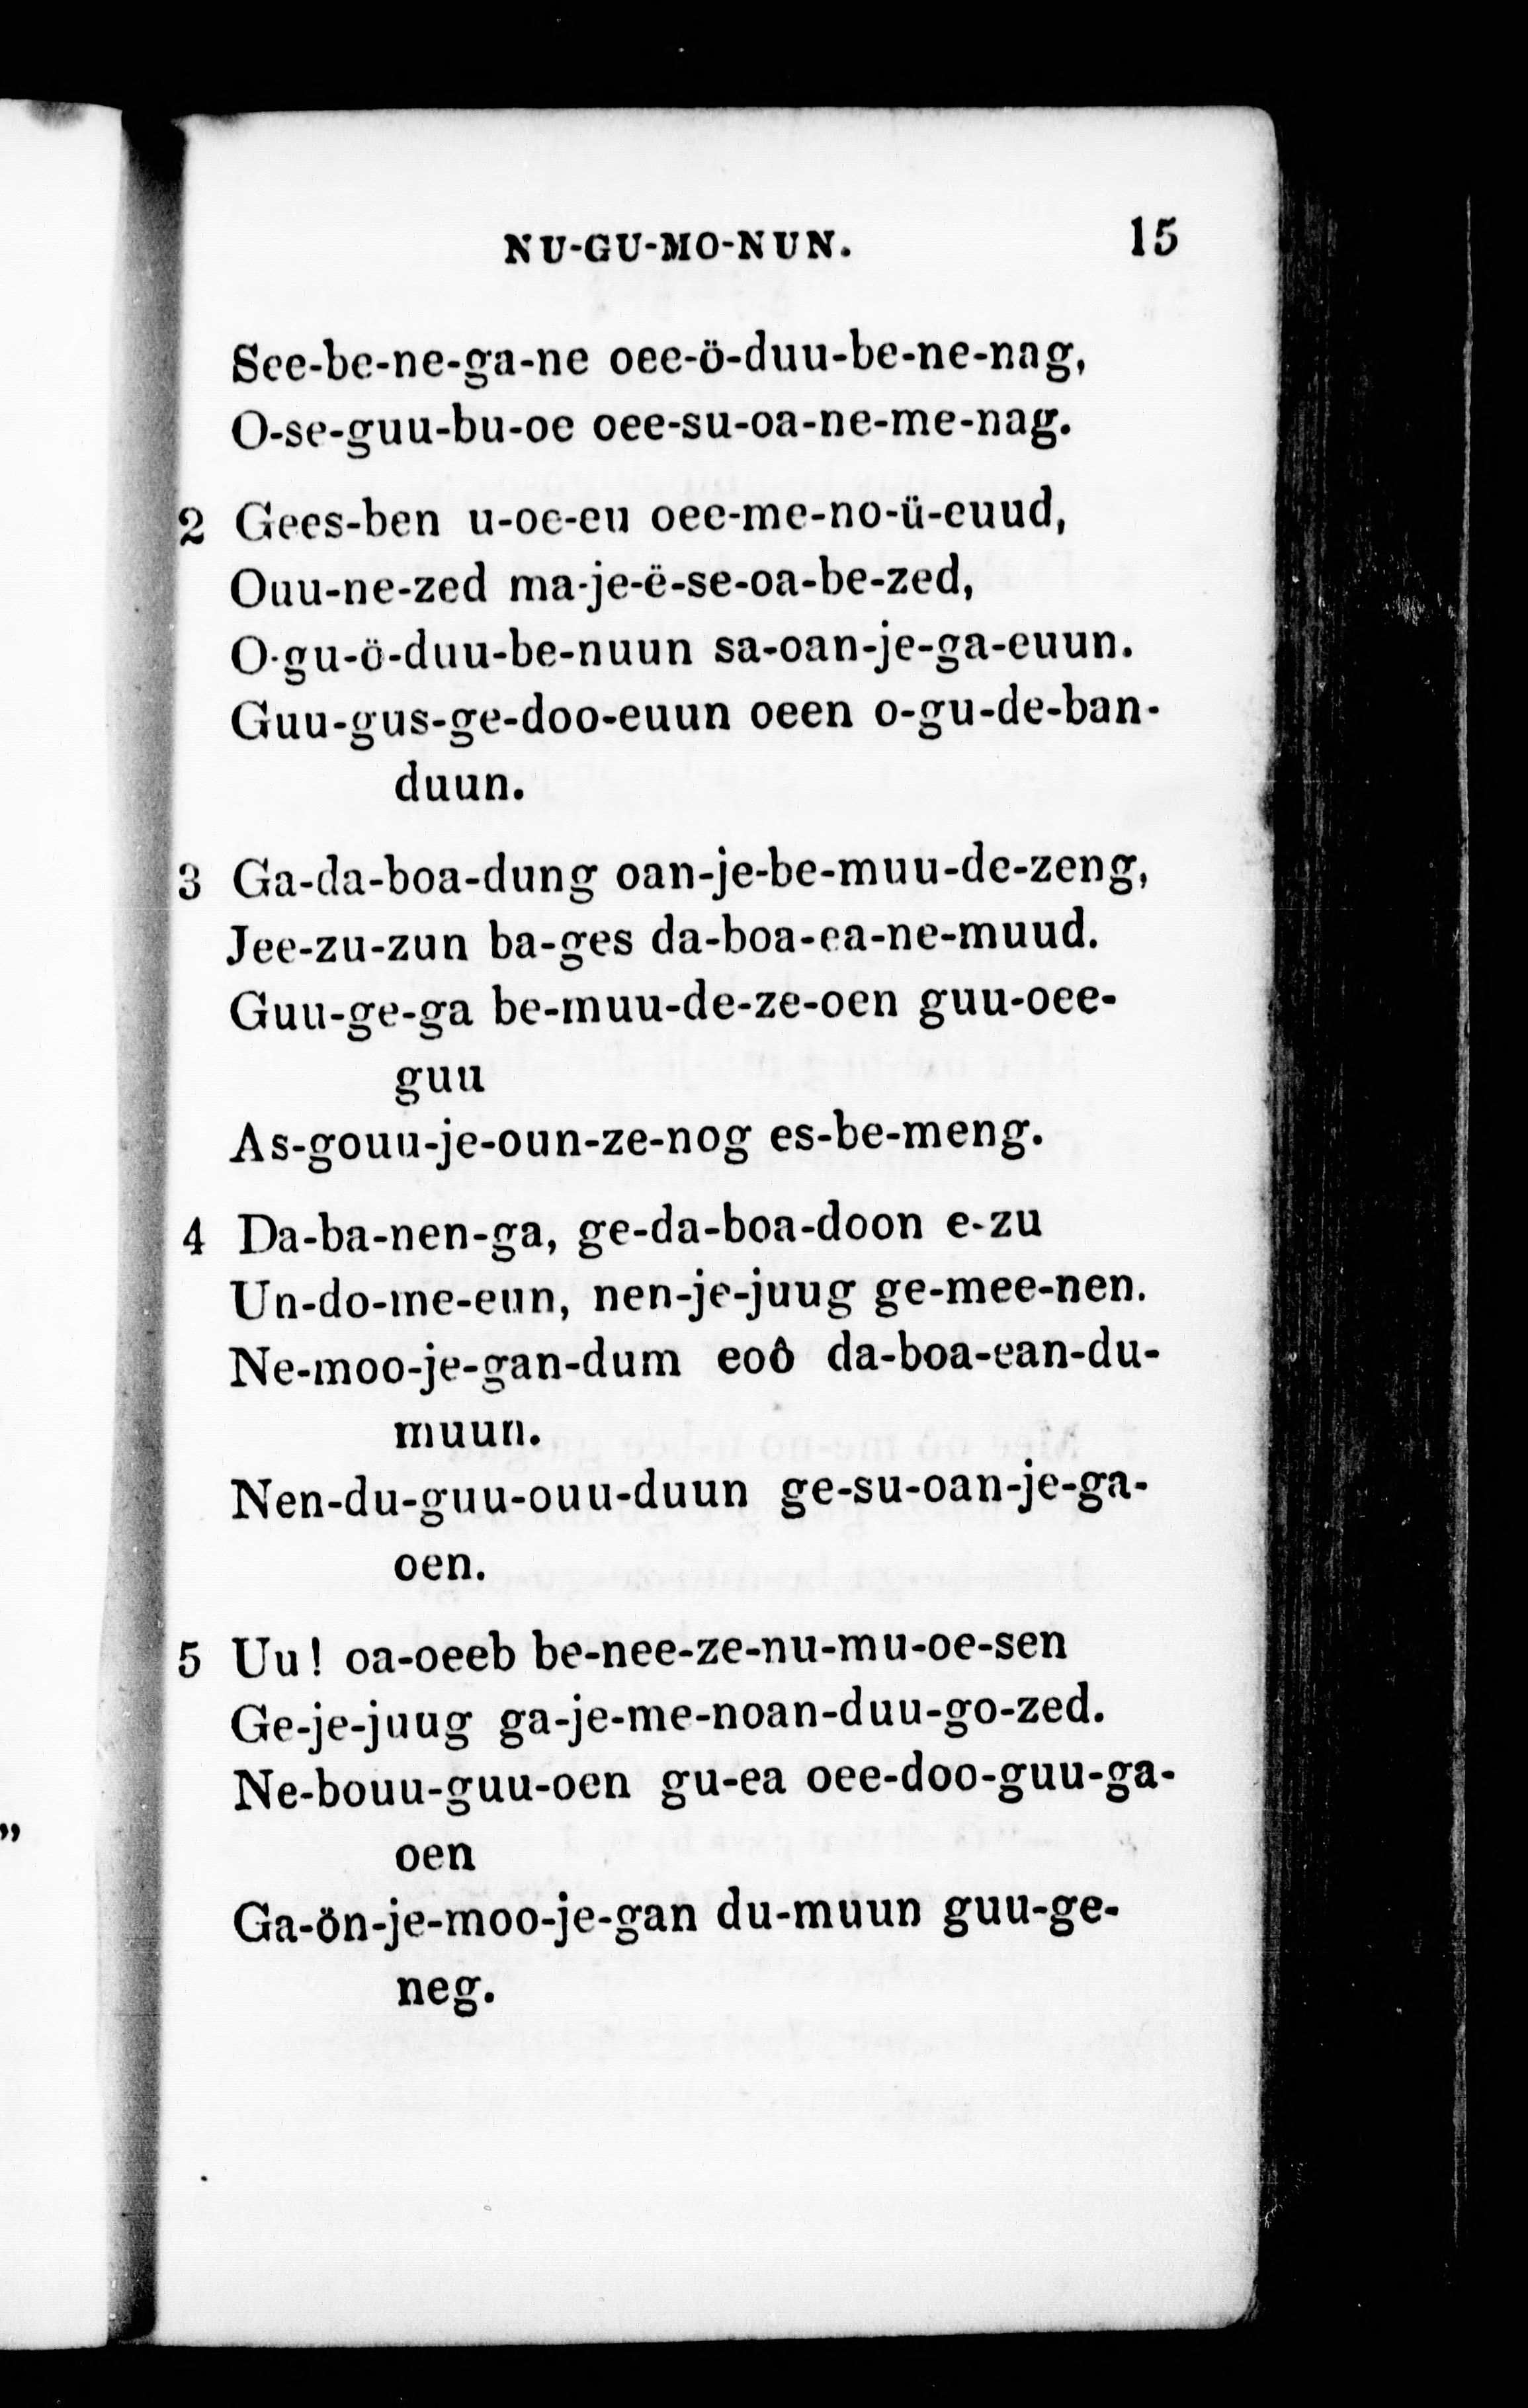 NU-GU-MO-NUN. 15
See-be-ne-ga-ne oee-ö-duu-be-ne-nag,
O-se-guu-bu-oe oee-su-oa-ne-me-nag.
2 Gees-ben u-oe-eu oee-me-no-ü-euud,
Ouu-ne-zed ma-je-ë-se-oa-be-zed,
O-gu-ö-duu-be-nuun sa-oan-je-ga-euun.
Guu-gus-ge-doo-euun oeen o-gu-de-ban-
duun.
3 Ga-da-boa-dung oan-je-be-muu-de-zeng,
Jee-zu-zun ba-ges da-boa-ea-ne-muud.
Guu-ge-ga be-muu-de-ze-oen guu-oee-
guu
As-gouu-je-oun-ze-nog es-be-meng.
4 Da-ba-nen-ga, ge-da-boa-doon e-zu
Un-do-me-eun, nen-je-juug ge-mee-nen.
Ne-moo-je-gan-dum eoô da-boa-ean-du-
muun.
Nen-du-guu-ouu-duun ge-su-oan-je-ga-
oen.
5 Uu! oa-oeeb be-nee-ze-nu-mu-oe-sen
Ge-je-juug ga-je-me-noan-duu-go-zed.
Ne-bouu-guu-oen gu-ea oee-doo-guu-ga-
oen
Ga-ön-je-moo-je-gan du-muun guu-ge-
neg.
"